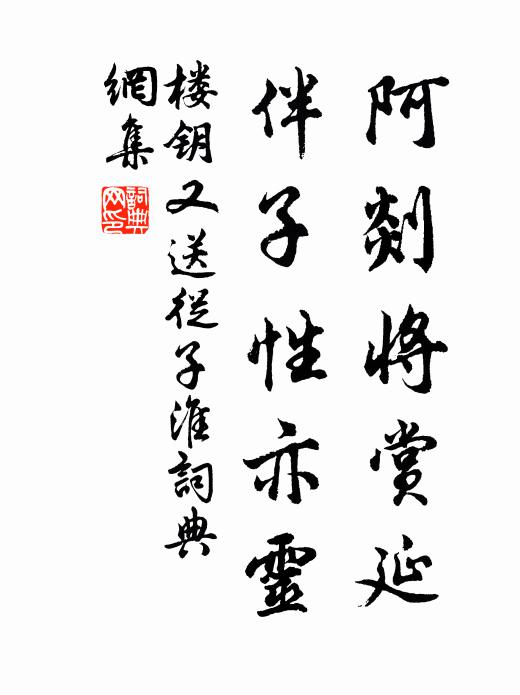 阿剡將賞延
伴子性亦靈
楼钥又送從子淮詞典
網集
詞典網印